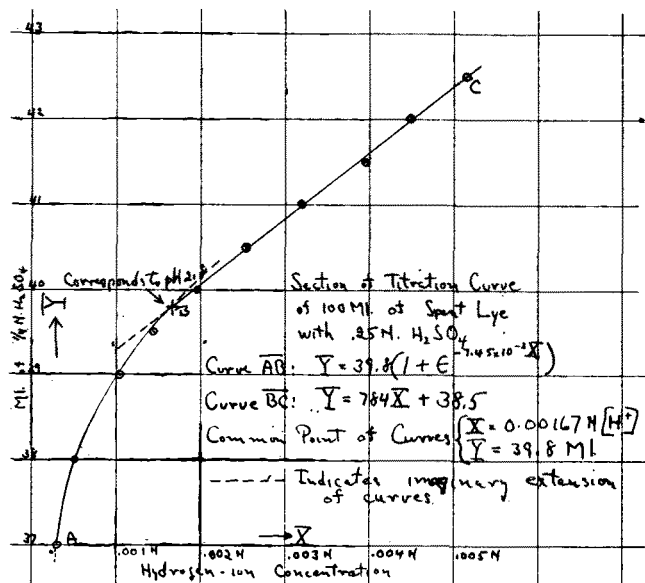 43
42
41
40
39
38
37
Ml. of ¼ N. H₂SO₄
Y
Corresponds to pH 2.
B
C
A
Section of Titration Curve
of 100 Ml. of Spent Lye
with .25 N. H₂SO₄
Curve AB: Y = 39.8(1 + ε^-7.45x10⁻²X)
Curve BC: Y = 784X + 38.5
Common Point of Curves { X = 0.00167 N [H⁺]
Y = 39.8 Ml.
---- Indicates imaginary extension
of curves.
→ X
.001 N .002 N .003 N .004 N .005 N
Hydrogen-ion Concentration